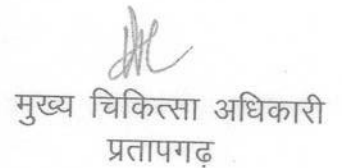 मुख्य चिकित्सा अधिकारी
प्रतापगढ़